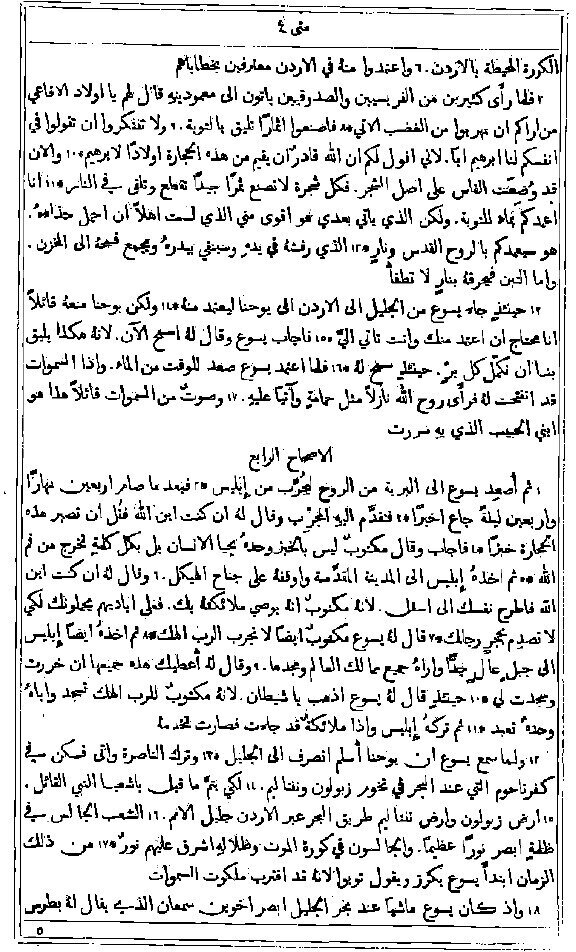 متى ٤
الكورة المحيطة بالاردن. ٦ واعتمدوا منهُ في الاردن معترفين بخطاياهم
٧ فلما رأى كثيرين من الفريسيين والصدوقيين ياتون الى معموديته قال لهم يا اولاد الافاعي
من اراكم ان تهربوا من الغضب الاتي ٨ فاصنعوا اثمارًا تليق بالتوبة. ٩ ولا تفتكروا ان تقولوا في
انفسكم لنا ابرهيم ابًا. لاني اقول لكم ان الله قادر ان يقيم من هذه الحجارة اولادًا لابرهيم ١٠ والان
قد وُضعت الفاس على اصل الشجر. فكل شجرة لا تصنع ثمرًا جيدًا تقطع وتلقى في النار ١١ انا
اعمدكم بماء للتوبة. ولكن الذي ياتي بعدي هو اقوى مني الذي لست اهلاً ان احمل حذاءهُ.
هو سيعمدكم بالروح القدس ونارٍ ١٢ الذي رفشهُ في يدهِ وسينقي بيدرهُ ويجمع قمحهُ الى المخزن.
واما التبن فيحرقهُ بنارٍ لا تطفأ
١٣ حينئذٍ جاء يسوع من الجليل الى الاردن الى يوحنا ليعتمد منهُ ١٤ ولكن يوحنا منعهُ قائلاً
انا محتاج ان اعتمد منك وانت تاتي اليَّ ١٥ فاجاب يسوع وقال لهُ اسمح الآن. لانهُ هكذا يليق
بنا ان نكمّل كل برٍّ. حينئذٍ سمح لهُ ١٦ فلما اعتمد يسوع صعد للوقت من الماء. واذا السموات
قد انفتحت لهُ فرأى روح الله نازلاً مثل حمامةٍ وآتيًا عليهِ. ١٧ وصوتٌ من السموات قائلاً هذا هو
ابني الحبيب الذي بهِ سررت
الاصحاح الرابع
١ ثم أُصعد يسوع الى البرية من الروح ليُجرَّب من إبليس ٢ فبعد ما صام اربعين نهارًا
واربعين ليلةً جاع اخيرًا ٣ فتقدَّم اليهِ المجرّب وقال لهُ ان كنت ابن الله فقُل ان تصير هذه
الحجارة خبزًا ٤ فاجاب وقال مكتوبٌ ليس بالخبز وحدهُ يحيا الانسان بل بكل كلمةٍ تخرج من فم
الله ٥ ثم اخذهُ إبليس الى المدينة المقدَّسة واوقفهُ على جناح الهيكل. ٦ وقال لهُ ان كنت ابن
الله فاطرح نفسك الى اسفل. لانهُ مكتوبٌ انهُ يوصي ملائكتهُ بك. فعلى اياديهم يحملونك لكي
لا تصدم بحجرٍ رجلك ٧ قال لهُ يسوع مكتوبٌ ايضًا لا تجرب الرب الهك ٨ ثم اخذهُ ايضًا إبليس
الى جبلٍ عالٍ جدًّا واراهُ جميع ممالك العالم ومجدها. ٩ وقال لهُ أعطيك هذه جميعها ان خررت
وسجدت لي ١٠ حينئذٍ قال لهُ يسوع اذهب يا شيطان. لانهُ مكتوبٌ للرب الهك تسجد واياهُ
وحدهُ تعبد ١١ ثم تركهُ إبليس واذا ملائكةٌ قد جاءت فصارت تخدمهُ
١٢ ولما سمع يسوع ان يوحنا أُسلم انصرف الى الجليل ١٣ وترك الناصرة واتى فسكن في
كفرناحوم التي عند البحر في تخوم زبولون ونفتاليم. ١٤ لكي يتمَّ ما قيل باشعيا النبي القائل.
١٥ أرض زبولون وارض نفتاليم طريق البحر عبر الاردن جليل الامم. ١٦ الشعب الجالس في
ظلمةٍ ابصر نورًا عظيمًا. والجالسون في كورة الموت وظلالهِ اشرق عليهم نورٌ ١٧ من ذلك
الزمان ابتدأ يسوع يكرز ويقول توبوا لانهُ قد اقترب ملكوت السموات
١٨ واذ كان يسوع ماشيًا عند بحر الجليل ابصر اخوين سمعان الذي يقال لهُ بطرس
٥